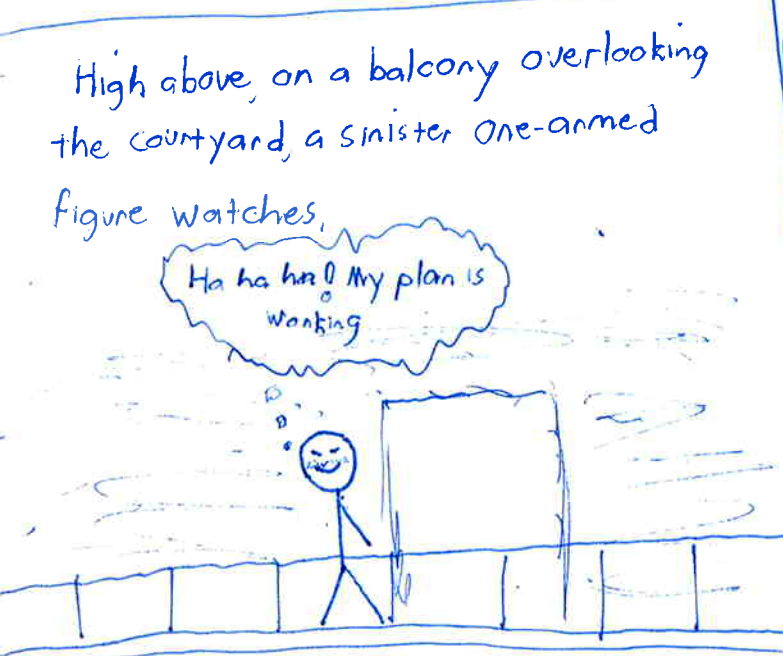 High above, on a balcony overlooking
the courtyard, a sinister one-armed
figure watches.
Ha ha ha! My plan is
working